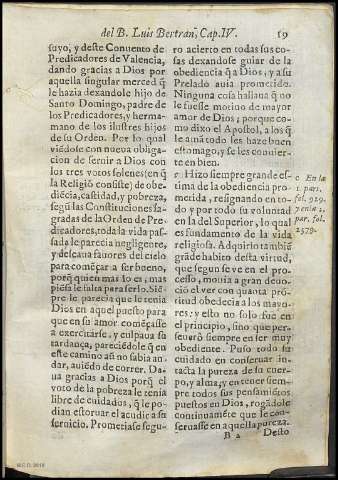 del B. Luis Bertran, Cap. IV. 59
suyo, y deste Conuento de
Predicadores de Valencia,
dando gracias a Dios por
aquella singular merced q̃
le hazia dexandole hijo de
Santo Domingo, padre de
los Predicadores, y herma-
mano de los ilustres hijos
de su Orden. Por lo qual
viẽdose con nueua obliga-
cion de seruir a Dios con
los tres votos solenes (en q̃
la Religiõ consiste) de obe-
diẽcia, castidad, y pobreza,
segũ las Constituciones sa-
gradas de la Orden de Pre-
dicadores, toda la vida pas-
sada le parecia negligente,
y deseaua fauores del cielo
para comẽçar a ser bueno,
porq̃ quien mas lo es, mas
piẽsa le falta para serlo. Siẽ-
pre le parecia que le tenia
Dios en aquel puesto para
que en su amor comẽçasse
a exercitarse, y culpaua su
tardança, pareciẽdole q̃ en
este camino aũ no sabia an-
dar, auiẽdo de correr. Da-
ua gracias a Dios porq̃ el
voto de la pobreza le tenia
libre de cuidados, q̃ le po-
dian estoruar el acudir a su
seruicio. Prometiase segu-
ro acierto en todas sus co-
sas dexandose guiar de la
obediencia q̃ a Dios, y a su
Prelado auia prometido.
Ninguna cosa hallaua q̃ no
le fuesse motiuo de mayor
amor de Dios; porque co-
mo dixo el Apostol, a los q̃
le amã todo les haze buen
estomago, y se les conuier-
te en bien.
c Hizo siempre grande es-
tima de la obediencia pro-
metida, resignando en to-
do y por todo su voluntad
en la del Superior, lo qual
es fundamento de la vida
religiosa. Adquirio tambiẽ
grãde habito desta virtud,
que segun se ve en el pro-
cesso, mouia a gran deuo-
ció el ver con quanta prõ-
titud obedecia a los mayo-
res: y esto no solo fue en
el principio, sino que per-
seuerò siempre en ser muy
obediente. Puso todo su
cuidado en conseruar in-
tacta la pureza de su cuer-
po, y alma, y en tener siem-
pre todos sus pensamiẽtos
puestos en Dios, rogãdole
continuamẽte que le con-
seruasse en aquella pureza.
B 2 Desto
c En la
1. part.
fol. 929.